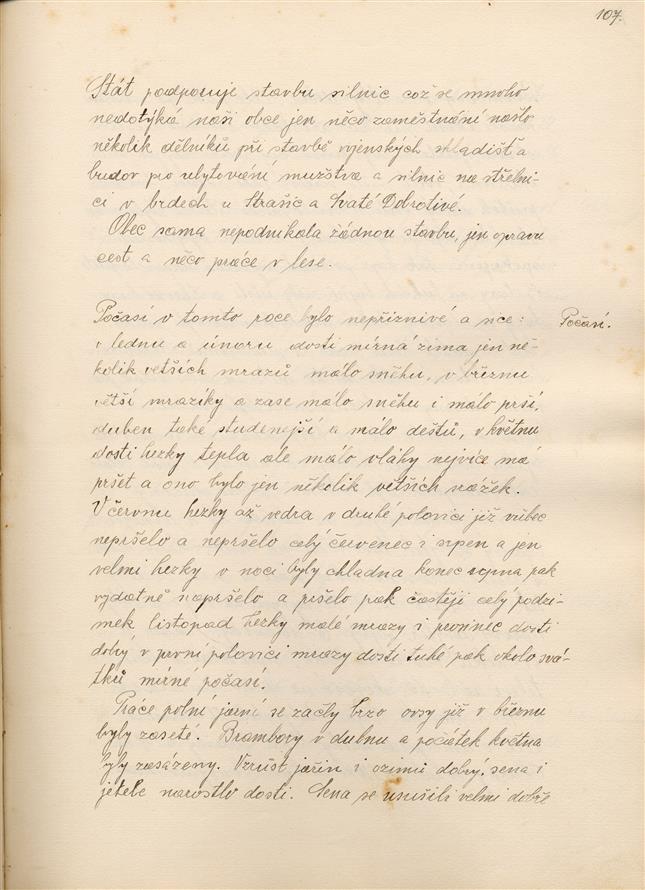 107.
Stát podporuje stavbu silnic což se mnoho
nedotýká naší obce jen něco zaměstnání našlo
několik dělníků při stavbě vojenských skladišť a
budov pro ubytování mužstva a silnic na střelni-
ci v brdech u Strašic a Svaté Dobrotivé.
Obec sama nepodnikala žádnou stavbu, jen opravu
cest a něco práce v lese.
Počasí v tomto roce bylo nepříznivé a sice: Počasí.
v lednu a únoru dosti mírná zima jen ně-
kolik větších mrazů málo sněhu, v březnu
větší mrazíky a zase málo sněhu i málo prší,
duben také studenější a málo dešťů, v květnu
dosti hezky tepla ale málo vláhy nejvíce má
pršet a ono bylo jen několik větších rážek.
V červnu hezky až vedra v druhé polovici již vůbec
nepršelo a nepršelo celý červenec i srpen a jen
velmi hezky v noci byly chladna konec srpna pak
vydatně napršelo a pršelo pak častěji celý podzi-
mek listopad hezky malé mrazy i prosinec dosti
dobrý v první polovici mrazy dosti tuhé pak okolo svá-
tků mírné počasí.
Práce polní jarní se začly brzo ovsy již v březnu
byly zaseté. Brambory v dubnu a počátek května
byly zasázeny. Vzrůst jařin i ozimů dobrý, sena i
jetele narostlo dosti. Sena se usušili velmi dobře